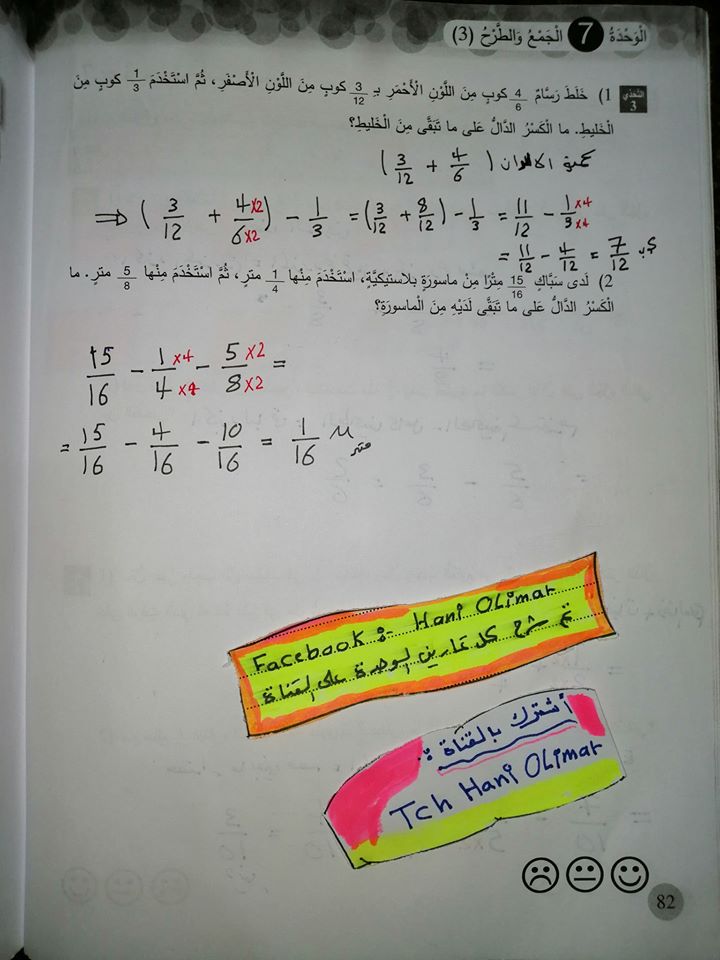 الْوَحْدَةُ 7 الْجَمْعُ وَالطَّرْحُ (3)
التَّحَدّي 3
1) خَلَطَ رَسّامٌ 4/6 كوبٍ مِنَ اللَّوْنِ الْأَحْمَرِ بِـ 3/12 كوبٍ مِنَ اللَّوْنِ الْأَصْفَرِ، ثُمَّ اسْتَخْدَمَ 1/3 كوبٍ مِنَ
الْخَليطِ. ما الْكَسْرُ الدّالُّ عَلى ما تَبَقَّى مِنَ الْخَليطِ؟
كمية الالوان (3/12 + 4/6)
⇒ (3/12 + 4×2/6×2) - 1/3 = (3/12 + 8/12) - 1/3 = 11/12 - 1×4/3×4
= 11/12 - 4/12 = 7/12 كوب
2) لَدى سَبّاكٍ 15/16 مِتْرًا مِنْ ماسورَةٍ بلاستيكيَّةٍ، اسْتَخْدَمَ مِنْها 1/4 مترٍ، ثُمَّ اسْتَخْدَمَ مِنْها 5/8 مترٍ. ما
الْكَسْرُ الدّالُّ عَلى ما تَبَقَّى لَدَيْهِ مِنَ الْماسورَةِ؟
15/16 - 1×4/4×4 - 5×2/8×2 =
= 15/16 - 4/16 - 10/16 = 1/16 متر
Facebook :- Hani OLimar
تم شرح كل تمارين الوحدة على القناة
أشترك بالقناة :
Tch Hani OLimar
82